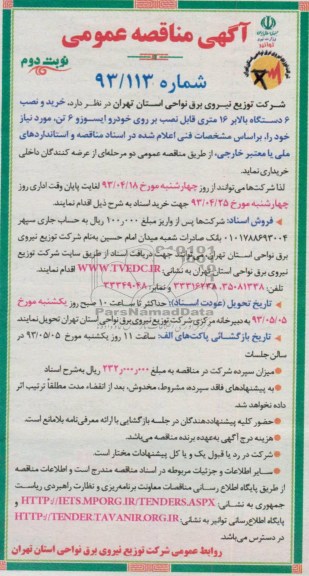 آگهی مناقصه عمومی
نوبت دوم
شماره ۹۳/۱۱۳
شرکت توزیع نیروی برق نواحی استان تهران در نظر دارد، خرید و نصب
۶ دستگاه بالابر ۱۶ متری قابل نصب بر روی خودرو ایسوزو ۶ تن، مورد نیاز
خود را، براساس مشخصات فنی اعلام شده در اسناد مناقصه و استانداردهای
ملی یا معتبر خارجی، از طریق مناقصه عمومی دو مرحله‌ای از عرضه کنندگان داخلی
خریداری نماید.
لذا شرکت‌ها می‌توانند از روز چهارشنبه مورخ ۹۳/۰۴/۱۸ لغایت پایان وقت اداری روز
چهارشنبه مورخ ۹۳/۰۴/۲۵ جهت خرید اسناد به شرح ذیل اقدام نمایند.
فروش اسناد: شرکت‌ها پس از واریز مبلغ ۱۰۰٫۰۰۰ ریال به حساب جاری سپهر
۰۱۰۱۷۸۸۶۹۳۰۰۴ بانک صادرات شعبه میدان امام حسین به‌نام شرکت توزیع نیروی
برق نواحی استان تهران می‌توانند جهت دریافت اسناد از طریق سایت شرکت توزیع
نیروی برق نواحی استان تهران به نشانی: WWW.TVEDC.IR اقدام نمایند.
تلفن: ۳۵۰۸۱۳۳۸، ۳۳۳۱۶۲۳۸ و نمابر: ۳۳۳۴۹۰۴۸
تاریخ تحویل (عودت اسناد): حداکثر تا ساعت ۱۰ صبح روز یکشنبه مورخ
۹۳/۰۵/۰۵ به دبیرخانه مرکزی شرکت توزیع نیروی برق نواحی استان تهران تحویل نمایند.
تاریخ بازگشائی پاکت‌های الف: ساعت ۱۱ روز یکشنبه مورخ ۹۳/۰۵/۰۵ در
سالن جلسات
میزان سپرده شرکت در مناقصه به مبلغ ۲۳۲٫۰۰۰٫۰۰۰ ریال به‌شرح اسناد
به پیشنهادهای فاقد سپرده، مشروط، مخدوش، بعد از انقضاء مدت مطلقاً ترتیب اثر
داده نخواهد شد.
حضور کلیه پیشنهاددهندگان در جلسه بازگشایی با ارائه معرفی‌نامه بلامانع است.
هزینه درج آگهی به‌عهده برنده مناقصه می‌باشد.
شرکت در رد یا قبول یک و یا کل پیشنهادات مختار است.
سایر اطلاعات و جزئیات مربوطه در اسناد مناقصه مندرج است و اطلاعات مناقصه
از طریق پایگاه اطلاع رسانی مناقصات معاونت برنامه‌ریزی و نظارت راهبردی ریاست
جمهوری به نشانی: HTTP://IETS.MPORG.IR/TENDERS.ASPX و
پایگاه اطلاع‌رسانی توانیر به نشانی: HTTP://TENDER.TAVANIR.ORG.IR
در دسترس می‌باشد.
روابط عمومی شرکت توزیع نیروی برق نواحی استان تهران